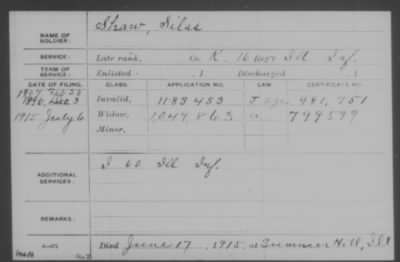 NAME OF SOLDIER: Shaw, Silas
SERVICE: Late rank, Co. K, 16 Reg't Ill Inf.
TERM OF SERVICE: Enlisted , 1 Discharged , 1
DATE OF FILING. CLASS. APPLICATION NO. LAW. CERTIFICATE NO.
1907 Feb 28
1896, Dec 3 Invalid, 1183453 981,751
1915 July 6 Widow, 1,049,863 799599
Minor,
ADDITIONAL SERVICES: I 60 Ill Inf.
REMARKS:
Died June 17, 1915, at Summer Hill, Ill